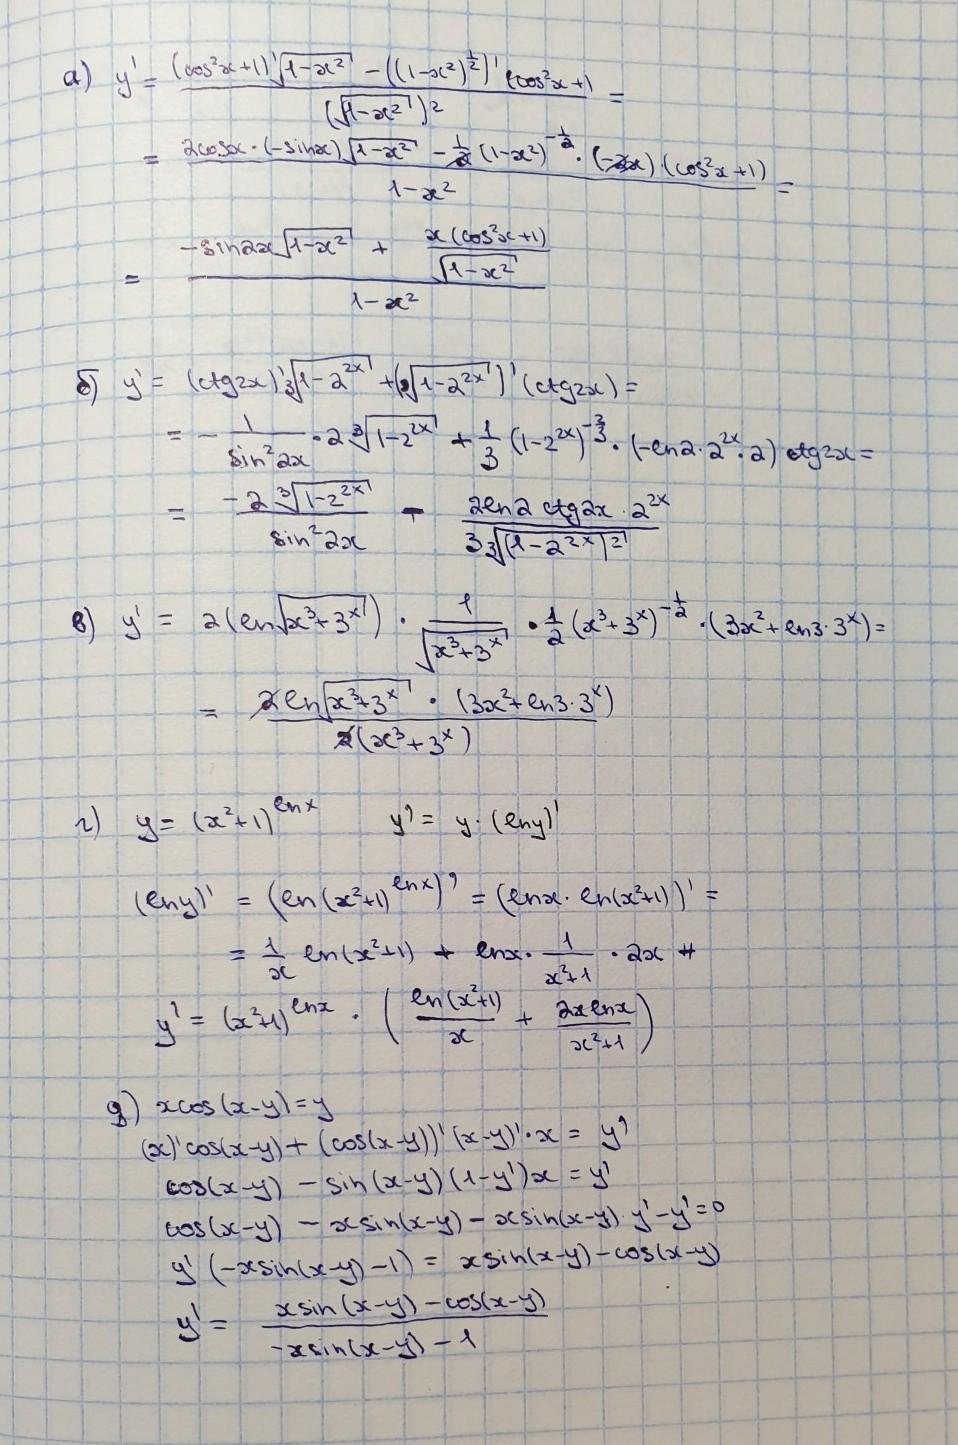 а) y' = ((cos²x+1)'√(1-x²) - ((1-x²)^(1/2))' (cos²x+1))/((√(1-x²))²) =
= (2cosx·(-sinx)√(1-x²) - 1/2 (1-x²)^(-1/2)·(-2x)·(cos²x+1))/(1-x²) =
= (-sin2x√(1-x²) + (x(cos²x+1))/(√(1-x²)))/(1-x²)
б) y' = (ctg2x)' ∛(1-2^(2x)) + (∛(1-2^(2x)))' (ctg2x) =
= - 1/(sin²2x) · 2 ∛(1-2^(2x)) + 1/3 (1-2^(2x))^(-2/3) · (-ln2·2^(2x)·2) ctg2x =
= (-2 ∛(1-2^(2x)))/(sin²2x) - (2ln2 ctg2x · 2^(2x))/(3∛((1-2^(2x))²))
в) y' = 2(ln√(x³+3^x)) · 1/(√(x³+3^x)) · 1/2 (x³+3^x)^(-1/2) · (3x²+ln3·3^x) =
= (2ln√(x³+3^x) · (3x²+ln3·3^x))/(2(x³+3^x))
г) y = (x²+1)^(lnx) y' = y·(lny)'
(lny)' = (ln(x²+1)^(lnx))' = (lnx·ln(x²+1))' =
= 1/x ln(x²+1) + lnx · 1/(x²+1) · 2x #
y' = (x²+1)^(lnx) · ((ln(x²+1))/x + (2xlnx)/(x²+1))
д) xcos(x-y)=y
(x)'cos(x-y) + (cos(x-y))'(x-y)'·x = y'
cos(x-y) - sin(x-y)(1-y')x = y'
cos(x-y) - xsin(x-y) - xsin(x-y)·y' - y' = 0
y'(-xsin(x-y)-1) = xsin(x-y) - cos(x-y)
y' = (xsin(x-y) - cos(x-y))/(-xsin(x-y) - 1)